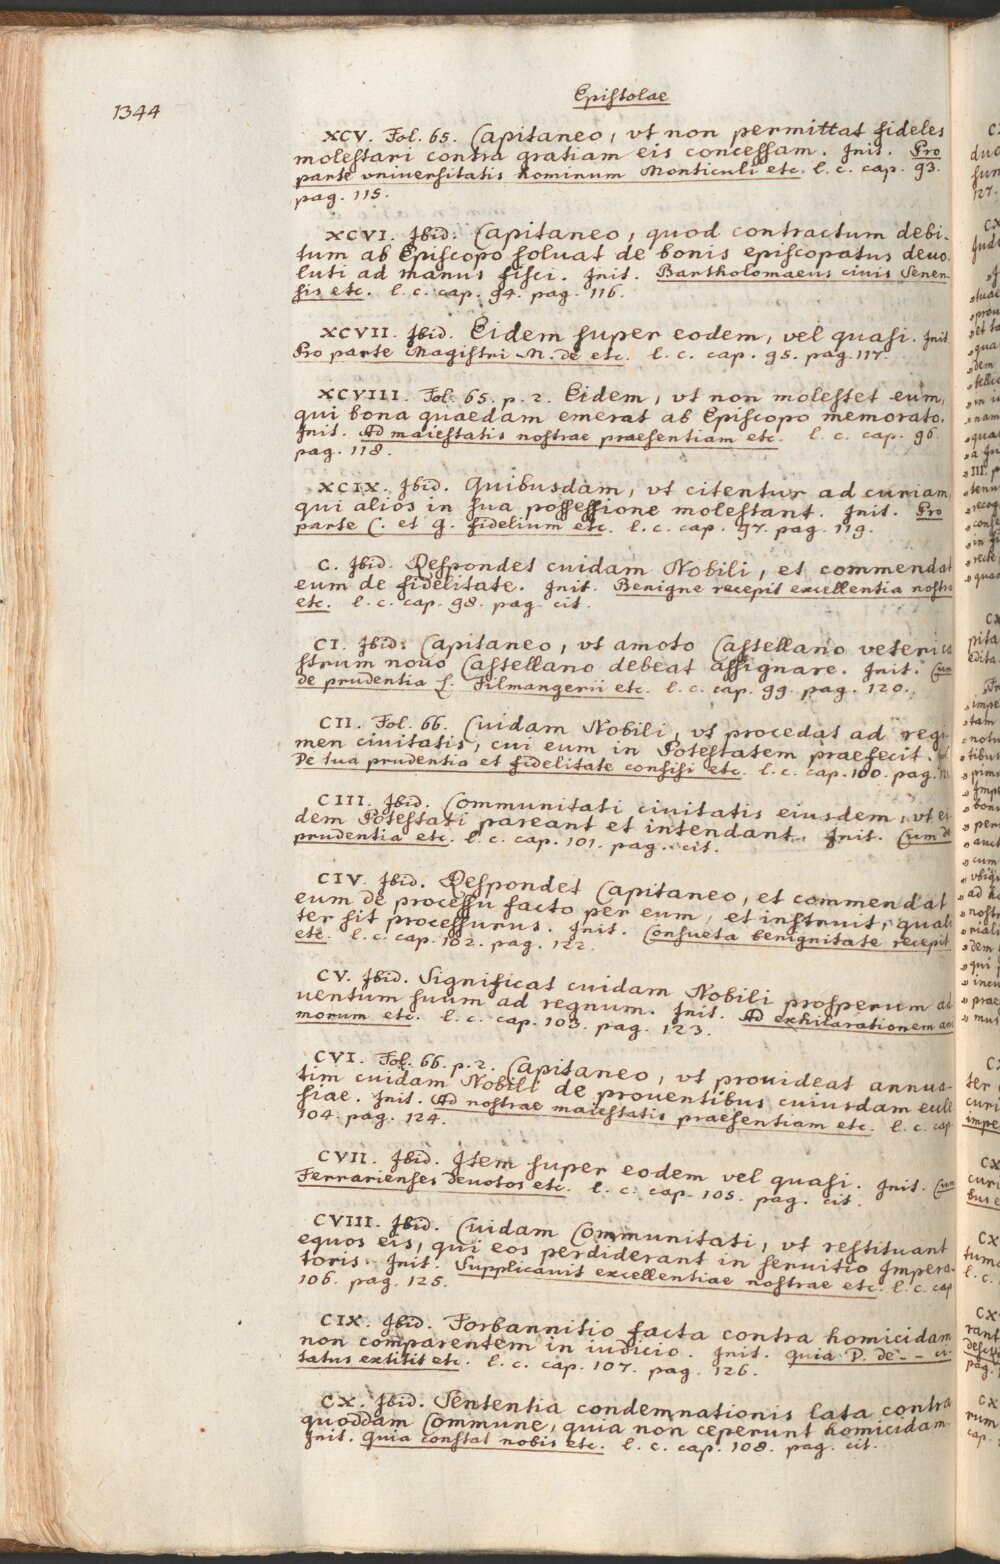 Epistolae
1344
XCV. Fol. 65. Capitaneo, vt non permittat fideles
molestari contra gratiam eis concessam. Init. Pro
parte vniuersitatis hominum Monticuli etc. l. c. cap. 93.
pag. 115.
XCVI. Ibid. Capitaneo, quod contractum debi-
tum ab Episcopo soluat de bonis episcopatus deuo-
luti ad manus fisci. Init. Bartholomaeus ciuis Senen-
sis etc. l. c. cap. 94. pag. 116.
XCVII. Ibid. Eidem super eodem, vel quasi. Init.
Pro parte Magistri N. de etc. l. c. cap. 95. pag. 117.
XCVIII. Fol. 65. p. 2. Eidem, vt non molestet eum,
qui bona quaedam emerat ab Episcopo memorato.
Init. Ad maiestatis nostrae praesentiam etc. l. c. cap. 96.
pag. 118.
XCIX. Ibid. Quibusdam, vt citentur ad curiam,
qui alios in sua possessione molestant. Init. Pro
parte C. et G. fidelium etc. l. c. cap. 97. pag. 119.
C. Ibid. Respondet cuidam Nobili, et commendat
eum de fidelitate. Init. Benigne recepit excellentia nostra
etc. l. c. cap. 98. pag. cit.
CI. Ibid. Capitaneo, vt amoto Castellano veteri ca
strum nouo Castellano debeat assignare. Init. Cum
de prudentia L. Filmangerii etc. l. c. cap. 99. pag. 120.
CII. Fol. 66. Cuidam Nobili, vt procedat ad regi-
men ciuitatis, cui eum in Potestatem praefecit.
De tua prudentia et fidelitate confisi etc. l. c. cap. 100. pag.
CIII. Ibid. Communitati ciuitatis eiusdem, vt ei
dem Potestati pareant et intendant. Init. Cum de
prudentia etc. l. c. cap. 101. pag. cit.
CIV. Ibid. Respondet Capitaneo, et commendat
eum de processu facto per eum, et instruit, quali
ter sit processurus. Init. Consueta benignitate recepit
etc. l. c. cap. 102. pag. 122.
CV. Ibid. Significat cuidam Nobili prosperum ad
uentum suum ad regnum. Init. Ad exhilarationem ani
morum etc. l. c. cap. 103. pag. 123.
CVI. Fol. 66. p. 2. Capitaneo, vt prouideat annua-
tim cuidam Nobili de prouentibus cuiusdam eccle
siae. Init. Ad nostrae maiestatis praesentiam etc. l. c. cap.
104. pag. 124.
CVII. Ibid. Item super eodem vel quasi. Init. Cum
Ferrarienses deuotos etc. l. c. cap. 105. pag. cit.
CVIII. Ibid. Cuidam Communitati, vt restituant
equos eis, qui eos perdiderant in seruitio Impera-
toris. Init. Supplicauit excellentiae nostrae etc. l. c. cap
106. pag. 125.
CIX. Ibid. Forbannitio facta contra homicidam
non comparentem in iudicio. Init. Quia P. de - - ci-
tatus extitit etc. l. c. cap. 107. pag. 126.
CX. Ibid. Sententia condemnationis lata contra
quoddam Commune, quia non ceperunt homicidam.
Init. Quia constat nobis etc. l. c. cap. 108. pag. cit.